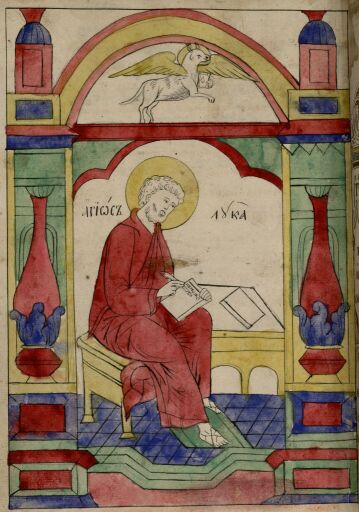 АГІѠСЪ ЛУКА